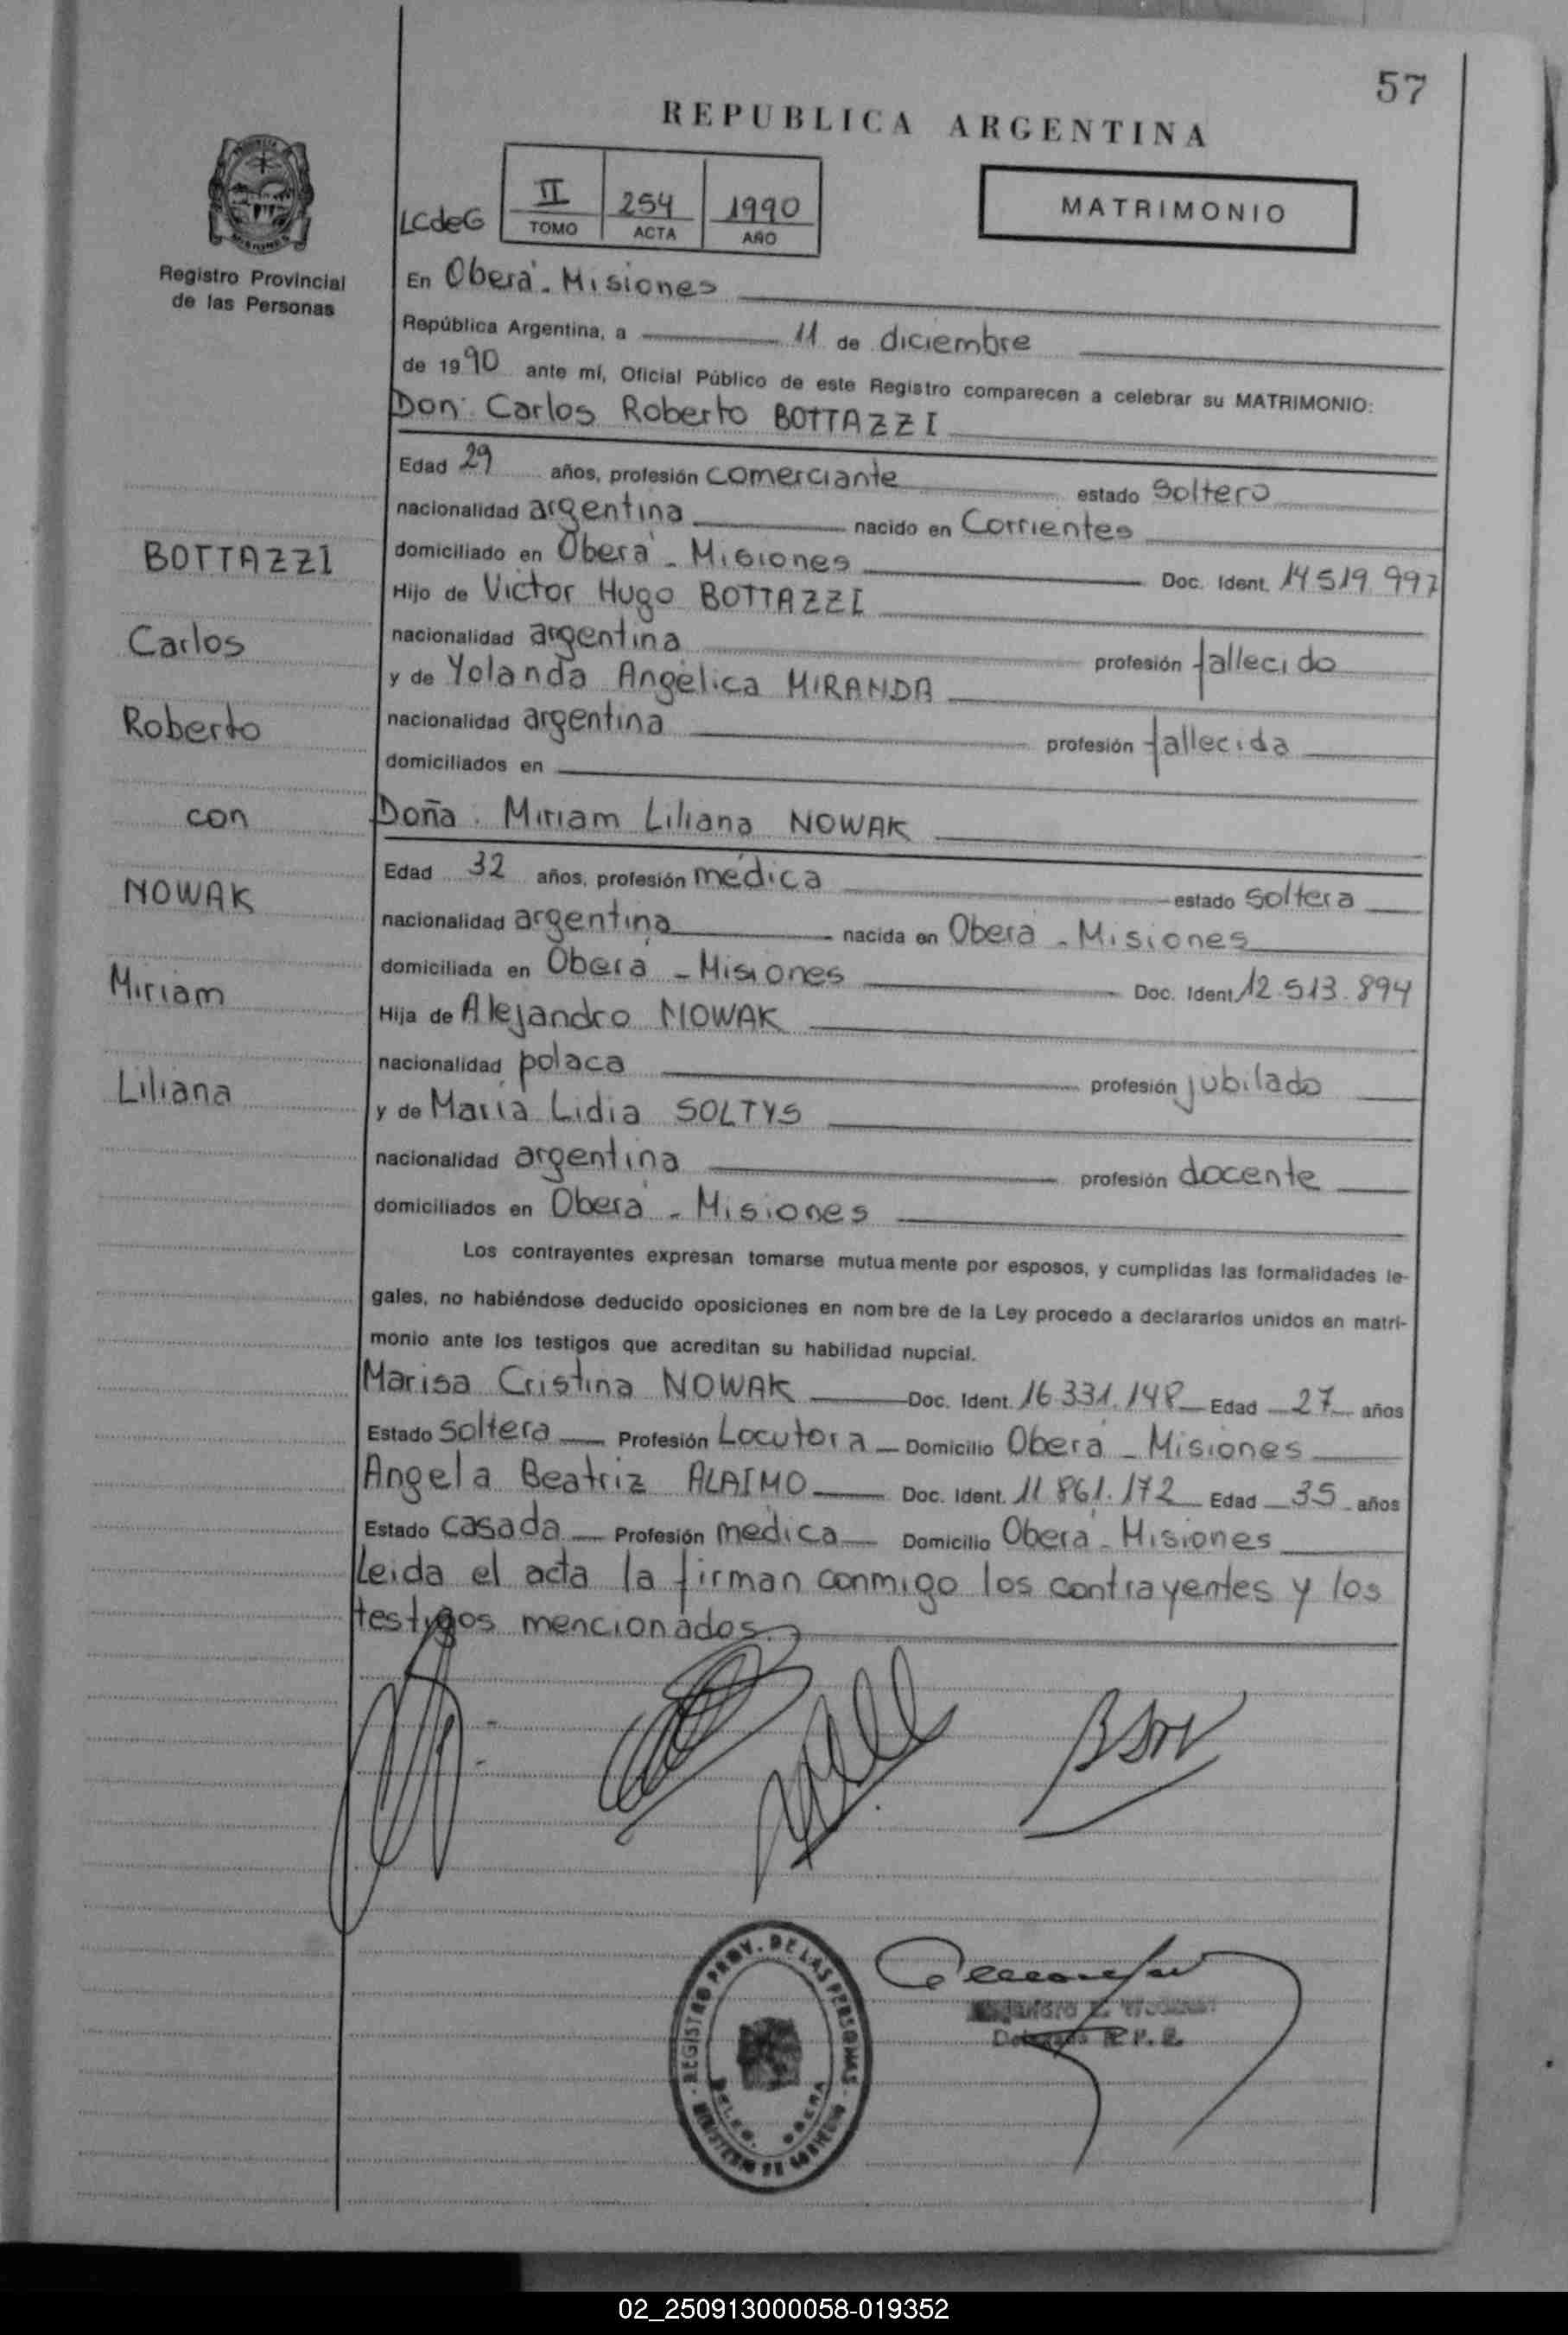 57
REPUBLICA ARGENTINA
MATRIMONIO
LCdeG
II 254 1990
TOMO ACTA AÑO
Registro Provincial
de las Personas
En Oberá - Misiones
República Argentina, a 11 de diciembre
de 1990 ante mí, Oficial Público de este Registro comparecen a celebrar su MATRIMONIO:
Don: Carlos Roberto BOTTAZZI
Edad 29 años, profesión comerciante estado soltero
nacionalidad argentina nacido en Corrientes
domiciliado en Oberá - Misiones Doc. Ident. 14.519.997
Hijo de Victor Hugo BOTTAZZI
nacionalidad argentina profesión fallecido
y de Yolanda Angélica MIRANDA
nacionalidad argentina profesión fallecida
domiciliados en
Doña: Miriam Liliana NOWAK
Edad 32 años, profesión médica estado soltera
nacionalidad argentina nacida en Oberá - Misiones
domiciliada en Oberá - Misiones Doc. Ident. 12.513.894
Hija de Alejandro NOWAK
nacionalidad polaca profesión jubilado
y de María Lidia SOLTYS
nacionalidad argentina profesión docente
domiciliados en Oberá - Misiones
BOTTAZZI
Carlos
Roberto
con
NOWAK
Miriam
Liliana
Los contrayentes expresan tomarse mutuamente por esposos, y cumplidas las formalidades le-
gales, no habiéndose deducido oposiciones en nombre de la Ley procedo a declararlos unidos en matri-
monio ante los testigos que acreditan su habilidad nupcial.
Marisa Cristina NOWAK Doc. Ident. 16.331.148 Edad 27 años
Estado soltera Profesión Locutora Domicilio Oberá - Misiones
Angela Beatriz ALAIMO Doc. Ident. 11.861.172 Edad 35 años
Estado casada Profesión médica Domicilio Oberá - Misiones
Leida el acta la firman conmigo los contrayentes y los
testigos mencionados.
REGISTRO PROV. DE LAS PERSONAS
DELEG. OBERA
MINISTERIO DE GOBIERNO
02_250913000058-019352